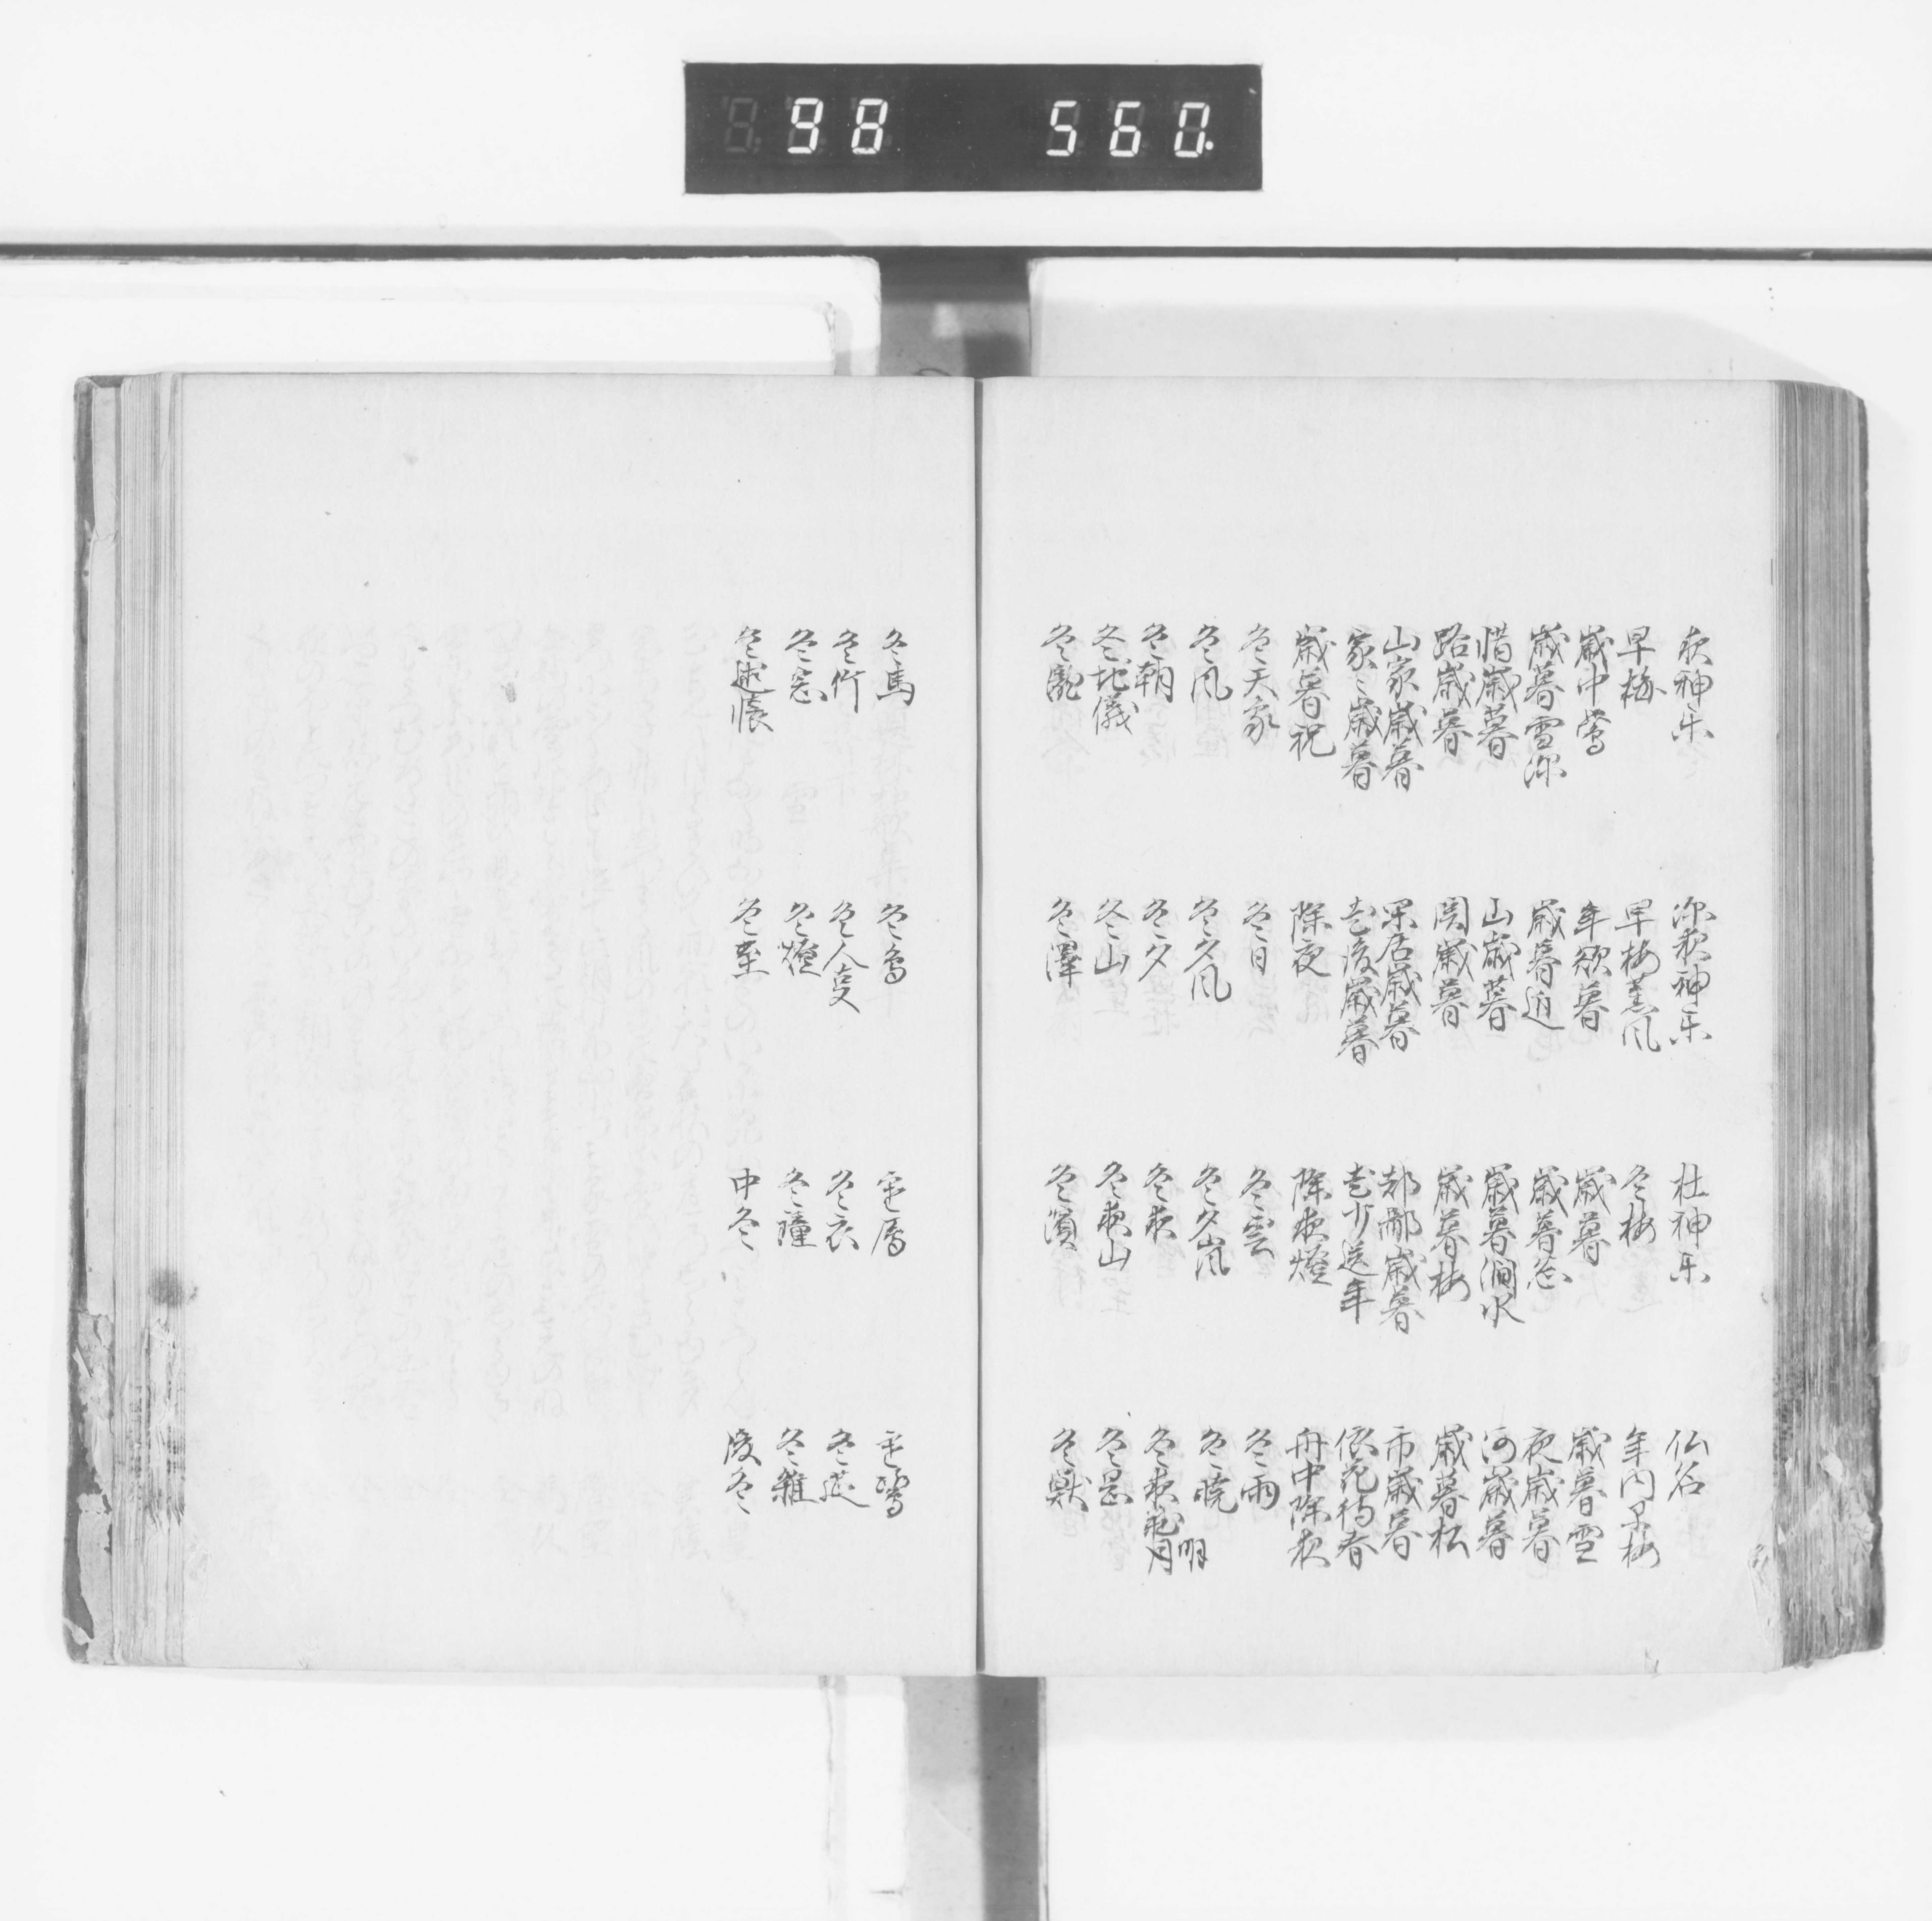 98 560.
夜神楽 深夜神楽 社神楽 仏名
早梅 早梅薫風 冬梅 年内早梅
歳中鶯 年欲暮 歳暮 歳暮雪
歳暮雪深 歳暮近 歳暮急 夜歳暮
惜歳暮 山歳暮 歳暮澗水 河歳暮
路歳暮 関歳暮 歳暮梅 歳暮松
山家歳暮 閑居歳暮 都鄙歳暮 市歳暮
家々歳暮 老後歳暮 老少送年 依花待春
歳暮祝 除夜 除夜燈 舟中除夜
冬天象 冬日 冬雲 冬雨
冬風 冬夕風 冬夕嵐 冬暁
冬朝 冬夕 冬夜 冬夜難明
冬地儀 冬山 冬夜山 冬
冬滝 冬澤 冬濱 冬獣
冬馬 冬鳥 冬
冬竹 冬人事 冬衣 冬莚
冬窓 冬燈 冬 冬雑
冬述懐 冬至 中冬 後冬